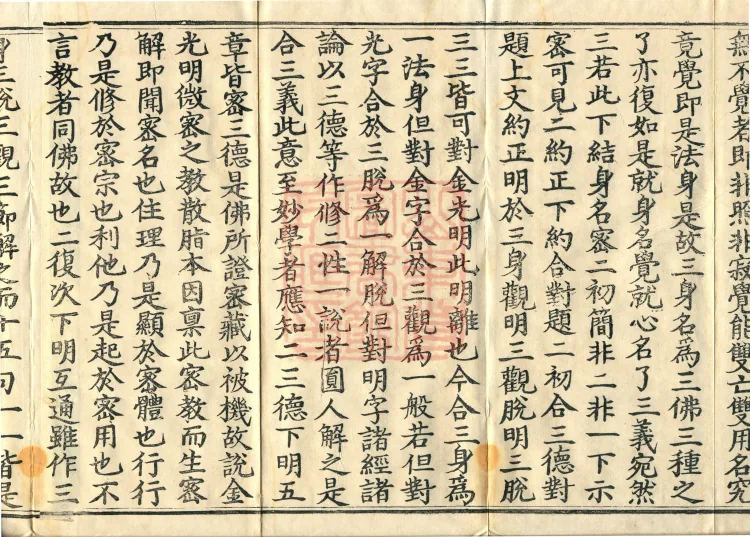 無不覺者即非照非寂覺能雙亡雙用名究
竟覺即是法身是故三身名為三佛三種之
了亦復如是就身名覺就心名了三義宛然
三若此下結身名審二初簡非二非一下示
審可見二約正下約合對題二初合三德對
題上文約正明於三身觀明三觀脫明三脫
三三皆可對金光明此明離也今合三身為
一法身但對金字合於三觀為一般若但對
光字合於三脫爲一解脫但對明字諸經諸
論以三德等作修二性一說者圓人解之是
合三義此意至妙學者應知二三德下明五
章皆審三德是佛所證審藏以被機故說金
光明微審之教散脂本因稟此審教而生審
解即聞審名也住理乃是顯於審體也行行
乃是修於審宗也利他乃是起於審用也不
言教者同佛故也二復次下明互通雖作三
三說三觀三節解之而十五句一一皆是